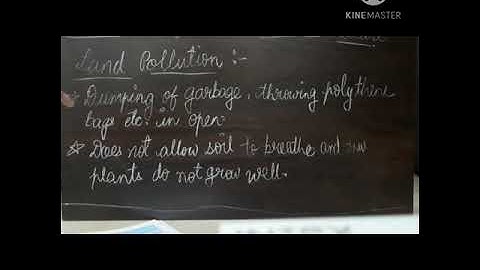 KINEMASTER
Land Pollution :-
☆ Dumping of garbage, throwing polythene
bags etc. in open
☆ Does not allow soil to breathe and
plants do not grow well.